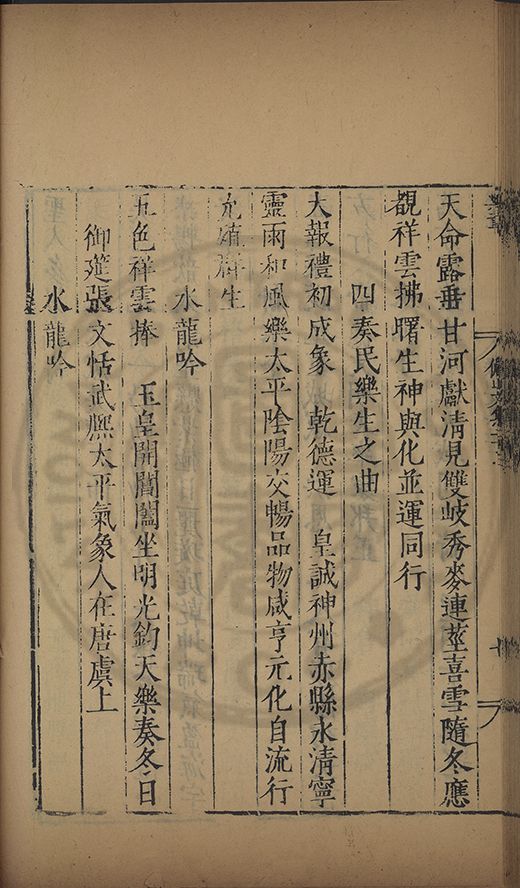 天命露垂甘河獻清見雙岐秀麥連莖喜雪隨冬應
覩祥雲拂曙生神與化並運同行
四奏民樂生之曲
大報禮初成象　乾德運　皇誠神州赤縣永清寧
靈雨和風樂太平陰陽交暢品物咸亨元化自流行
允殖羣生
水龍吟
五色祥雲捧　玉皇開閶闔坐明光鈞天樂奏冬日
御筵張文恬武熈太平氣象人在唐虞上
水龍吟